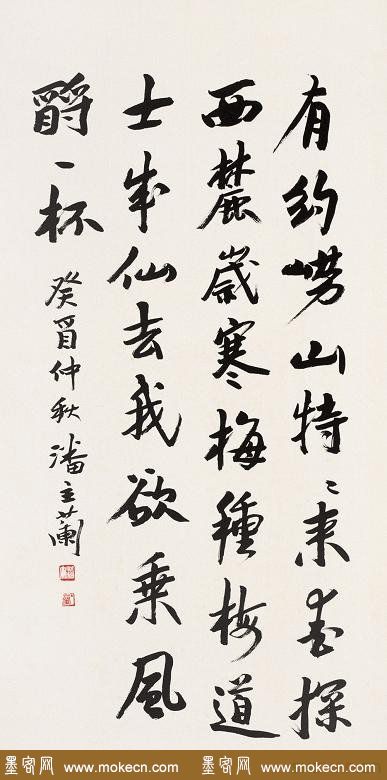 有約嶗山特〻來春探
西麓歲寒梅種梅道
士成仙去我欲乘風
爵一杯
癸酉仲秋潘主蘭
墨客网 www.mokecn.com 墨客网 www.mokecn.com 墨客网